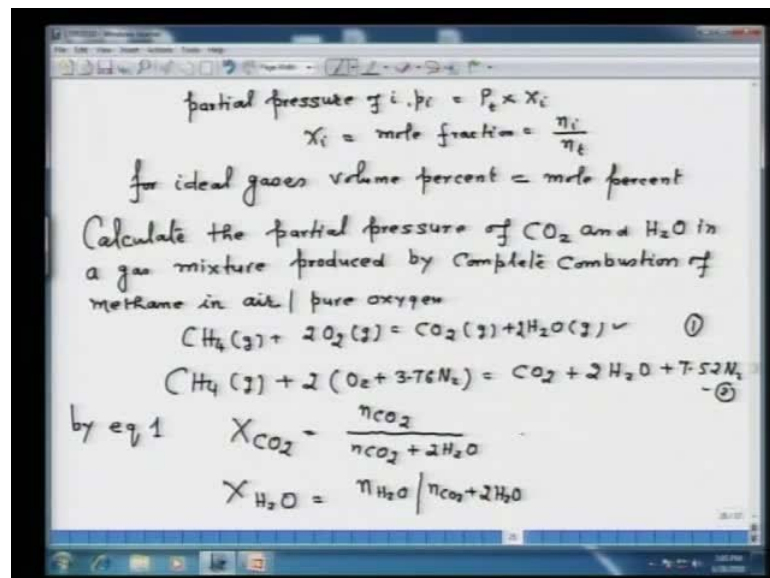 File Edit View Insert Actions Tools Help
partial pressure of i. pi = Pt × Xi
Xi = mole fraction = ni / nt
for ideal gases volume percent = mole percent
Calculate the partial pressure of CO2 and H2O in
a gas mixture produced by Complete Combustion of
methane in air | pure oxygen
CH4 (g) + 2O2 (g) = CO2 (g) + 2H2O (g) ✓ ①
CH4 (g) + 2 (O2 + 3.76N2) = CO2 + 2H2O + 7.52N2
-②
by eq 1 XCO2 = nCO2 / nCO2 + 2H2O
XH2O = nH2O | nCO2 + 2H2O